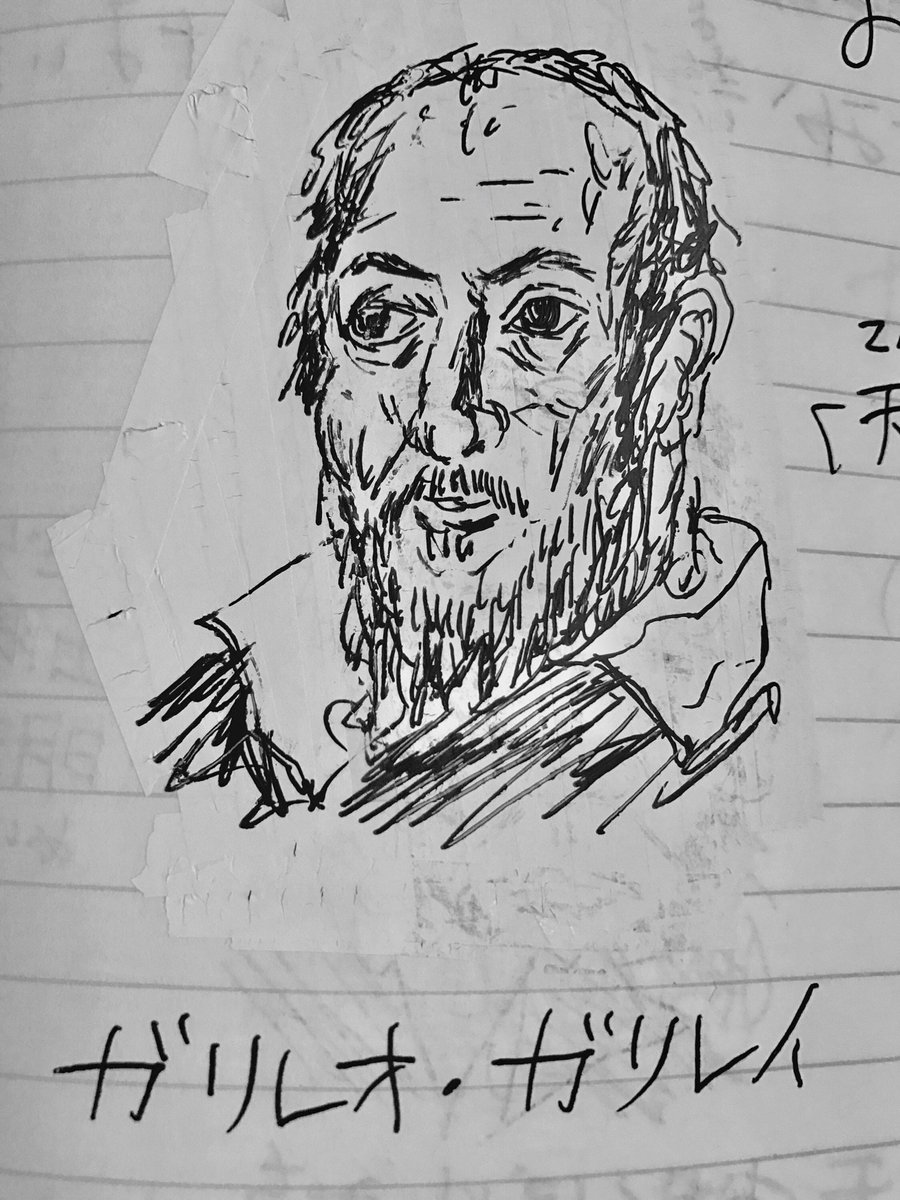 ガリレオ・ガリレイ